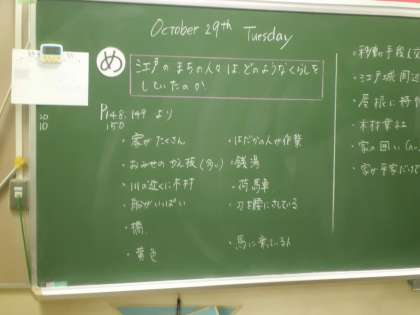 October 29th Tuesday
め
江戸のまちの人々はどのようなくらしを
していたのか
P148.149 より
150
20
10
・家がたくさん
・おみせの かん板(多い)
・川の近くに木材
・船がいっぱい
・橋
・黄色
・はだかの人が作業
・銭湯
・荷馬車
・刀を腰にさしている
・馬に乗っている人
・移動の手段
・江戸城周辺
・屋根に
・木材
・家の囲い
・家が平家だけで